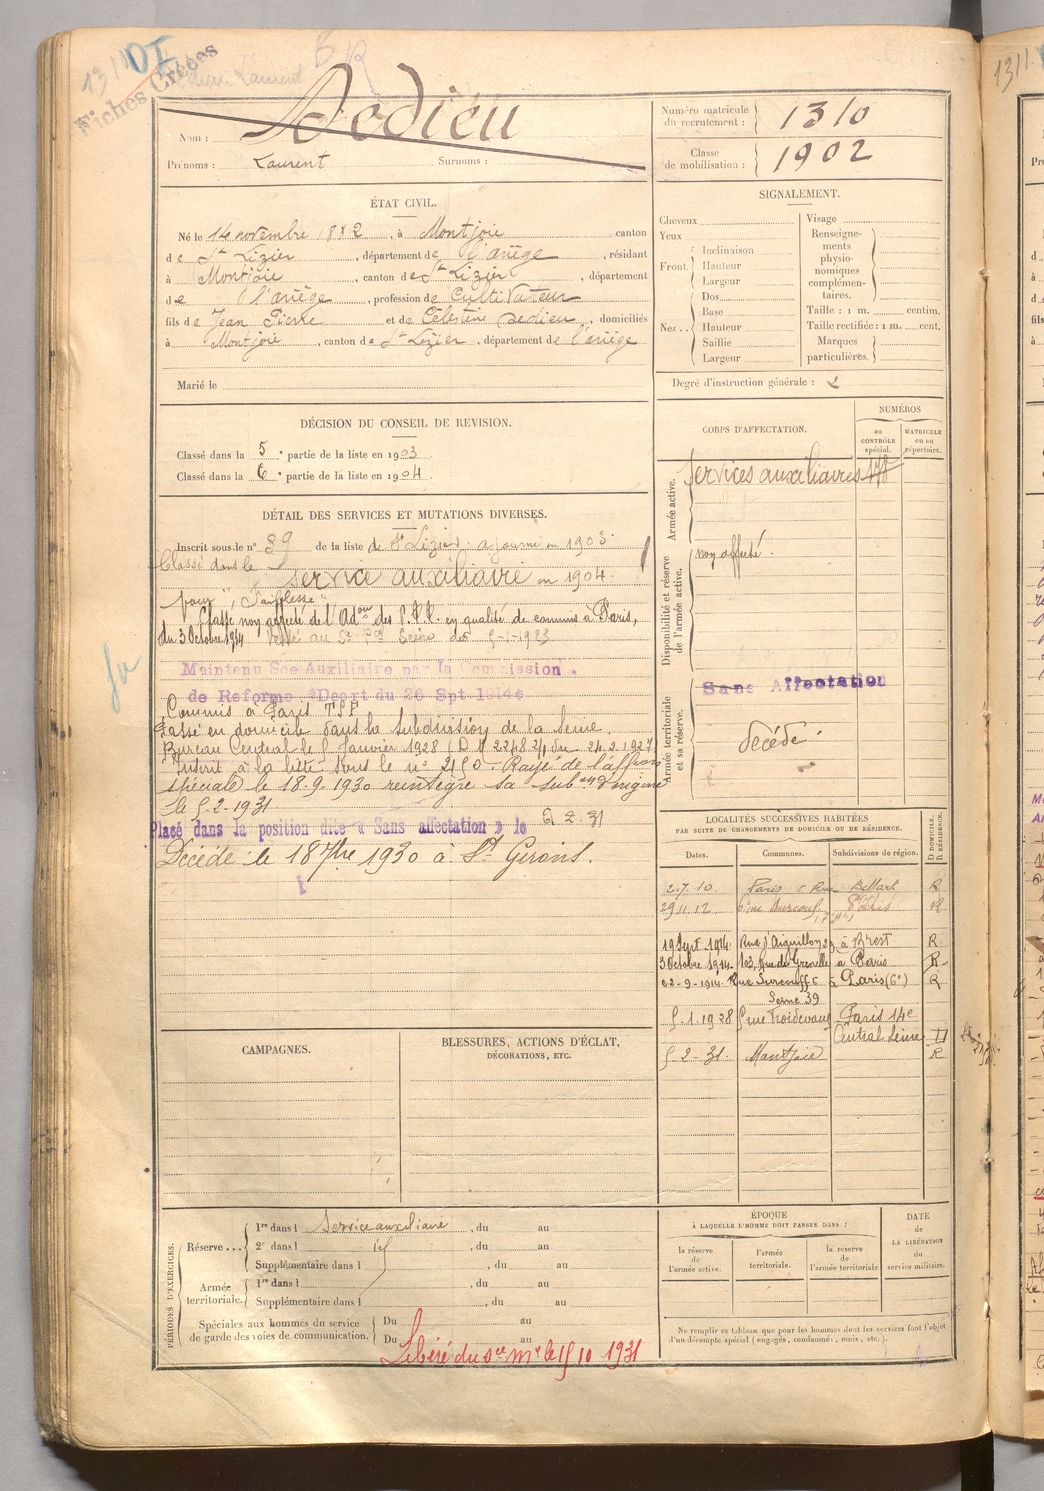 1310
Fiches Créées
Nom : Dedieu
Prénoms : Laurent Surnoms :
Numéro matricule du recrutement : 1310
Classe de mobilisation : 1902
ÉTAT CIVIL.
Né le 14 novembre 1882, à Montjoie canton
de St Lizier, département de l'ariège, résidant
à Montjoie, canton de St Lizier, département
de l'ariège, profession de Cultivateur
fils de Jean Pierre et de Célestine Dedieu, domiciliés
à Montjoie, canton de St Lizier, département de l'ariège
Marié le
SIGNALEMENT.
Cheveux
Yeux
Front
Inclinaison
Hauteur
Largeur
Nez
Dos
Base
Hauteur
Saillie
Largeur
Visage
Renseignements physionomiques complémentaires.
Taille : 1 m. centim.
Taille rectifiée : 1 m. cent.
Marques particulières.
Degré d'instruction générale :
DÉCISION DU CONSEIL DE REVISION.
Classé dans la 5e partie de la liste en 1903.
Classé dans la 6e partie de la liste en 1904.
DÉTAIL DES SERVICES ET MUTATIONS DIVERSES.
Inscrit sous le n° 39 de la liste de St Lizier. ajourné en 1903.
Classé dans le service auxiliaire en 1904.
pour "Faiblesse"
Classé non affecté de l'Adon des P.T.T. en qualité de commis à Paris,
du 3 Octobre 1914
Maintenu Sce Auxiliaire par la Commission
de Reforme Depart du 26 Spt 1914
Commis à Paris TSF
Passé en domicile dans la subdivision de la Seine.
Bureau Central le 5 Janvier 1928
Inscrit à la liste sous le n° 2150 - Rayé de l'affon
spéciale le 18.9.1930 réintègre sa subon d'origine
le 5-2-1931
Placé dans la position dite « Sans affectation » le 5 2. 31
Décédé le 18 7bre 1930 à St Girons.
CORPS D'AFFECTATION.
NUMÉROS
au CONTRÔLE spécial.
MATRICULE ou au répertoire.
Armée active.
Services auxiliaires
Disponibilité et réserve de l'armée active.
non affecté.
Armée territoriale et sa réserve.
Sans Affectation
décédé.
LOCALITÉS SUCCESSIVES HABITÉES
PAR SUITE DE CHANGEMENTS DE DOMICILE OU DE RÉSIDENCE.
Dates. Communes. Subdivisions de région. D DOMICILE, R RÉSIDENCE.
2.7.10. Paris 5 Rue R
29.11.12 6 rue Surcouf
19 Sept 1914. Rue d'Aiguillon à Brest R.
3 Octobre 1914. 103, Rue de Grenelle à Paris R
22-9-1914. Rue Surcouff 6 à Paris (6e) R
Seine 39
5.1.1928 5 rue Froidevaux Paris 14e
Central Seine D
5-2-31. Montjoie R
CAMPAGNES.
BLESSURES, ACTIONS D'ÉCLAT,
DÉCORATIONS, ETC.
PÉRIODES D'EXERCICES.
Réserve ...
1re dans l Service auxiliaire, du au
2e dans l id, du au
Supplémentaire dans l, du au
Armée territoriale.
1re dans l, du au
Supplémentaire dans l, du au
Spéciales aux hommes du service
de garde des voies de communication.
Du au
Du au
Libéré du sce mre le 15 10 1931
ÉPOQUE
À LAQUELLE L'HOMME DOIT PASSER DANS :
la réserve de l'armée active.
l'armée territoriale.
la réserve de l'armée territoriale
DATE de LA LIBÉRATION du service militaire.
Ne remplir ce tableau que pour les hommes dont les services font l'objet
d'un décompte spécial (engagés, condamnés, omis, etc.).